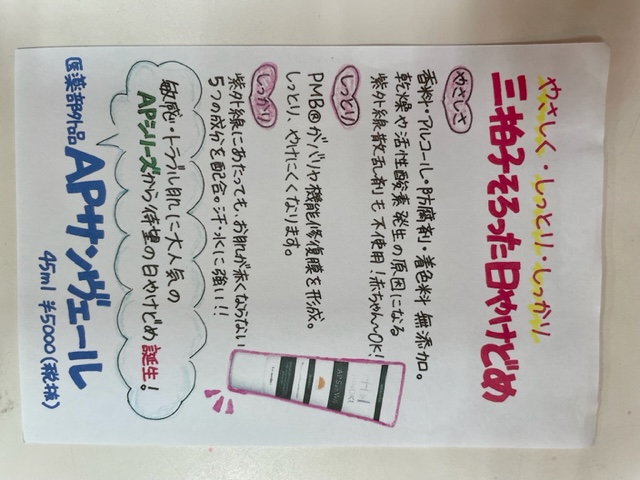 やさしく・しっとり・しっかり
三拍子そろった日やけどめ
やさしさ
香料・アルコール・防腐剤・着色料 無添加。
乾燥や活性酸素 発生の原因になる
紫外線散乱剤も不使用！赤ちゃん〜OK！
しっとり
PMB®がバリヤ機能修復膜を形成。
しっとり、やけにくくなります。
しっかり
紫外線にあたっても、お肌が赤くならない
5つの成分を配合。汗・水に強い！！
敏感・トラブル肌に大人気の
APシリーズから待望の日やけどめ誕生！
医薬部外品 APサンヴェール
45ml ¥5000（税抜）